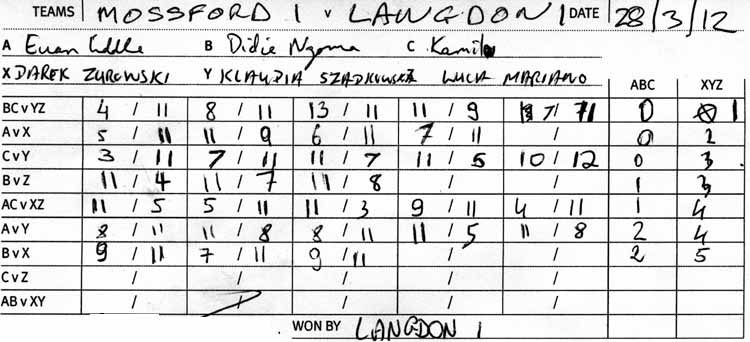 TEAMS MOSSFORD 1 v LANGDON 1 DATE 28/3/12
A Euan B Didie Ngoma C Kamil
X DAREK ZUROWSKI Y KLAUDIA SZADKOWSKA LUCA MARIANO
ABC XYZ
BC v YZ 4 / 11 8 / 11 13 / 11 11 / 9 7 / 11 0 1
A v X 5 / 11 11 / 9 6 / 11 7 / 11 / 0 2
C v Y 3 / 11 7 / 11 11 / 7 11 / 5 10 / 12 0 3
B v Z 11 / 4 11 / 7 11 / 8 / / 1 3
AC v XZ 11 / 5 5 / 11 11 / 3 9 / 11 4 / 11 1 4
A v Y 8 / 11 11 / 8 8 / 11 11 / 5 11 / 8 2 4
B v X 9 / 11 7 / 11 9 / 11 / / 2 5
C v Z / / / / /
AB v XY / / / / /
WON BY LANGDON 1